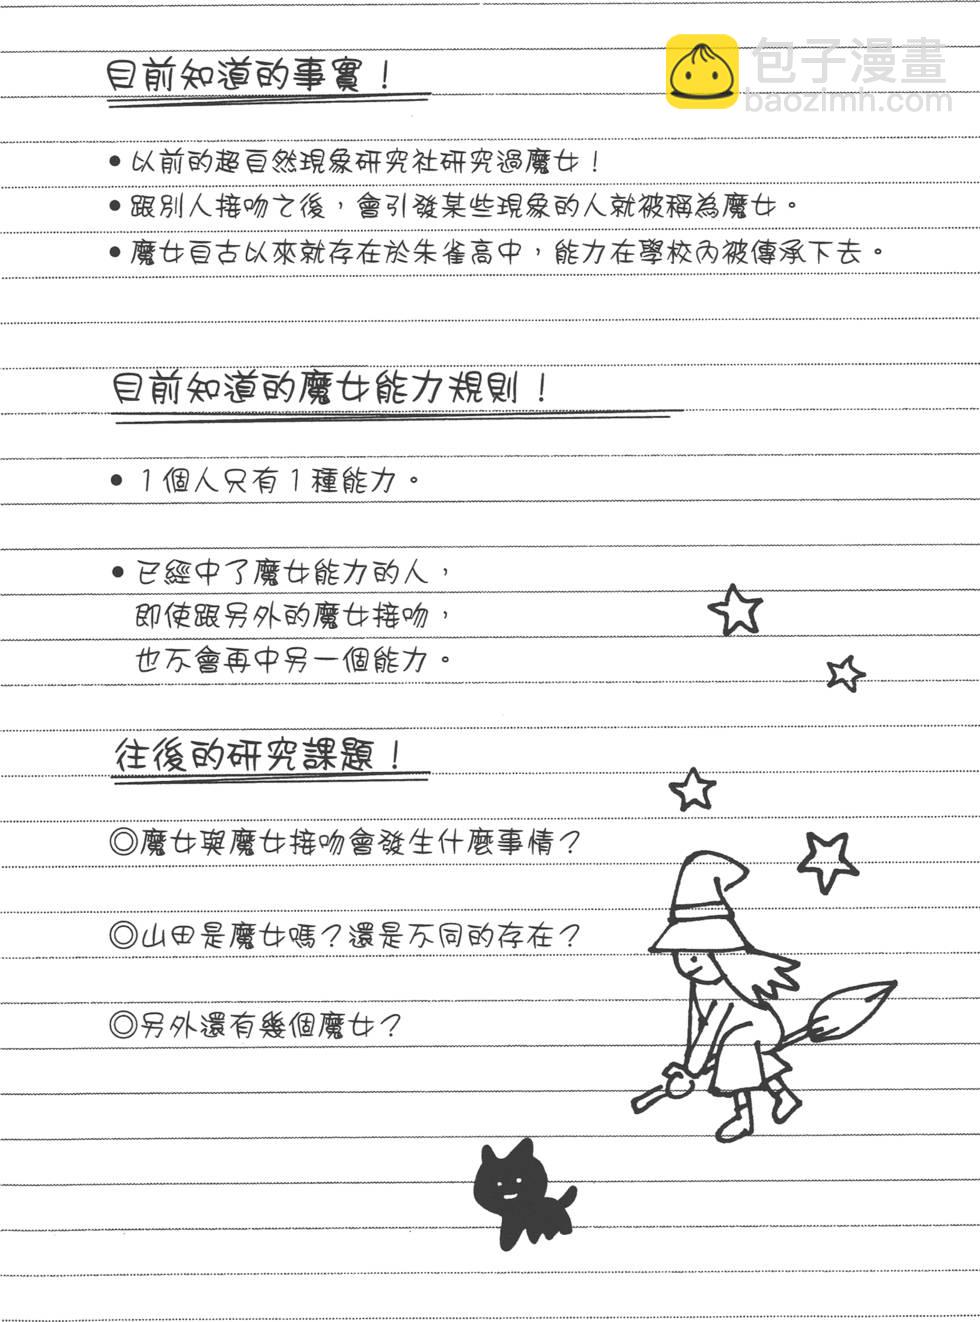 包子漫畫
baozimh.com
目前知道的事實！
●以前的超自然現象研究社研究過魔女！
●跟別人接吻之後，會引發某些現象的人就被稱為魔女。
●魔女自古以來就存在於朱雀高中，能力在學校內被傳承下去。
目前知道的魔女能力規則！
●１個人只有１種能力。
●已經中了魔女能力的人，
即使跟另外的魔女接吻，
也不會再中另一個能力。
往後的研究課題！
◎魔女與魔女接吻會發生什麼事情？
◎山田是魔女嗎？還是不同的存在？
◎另外還有幾個魔女？